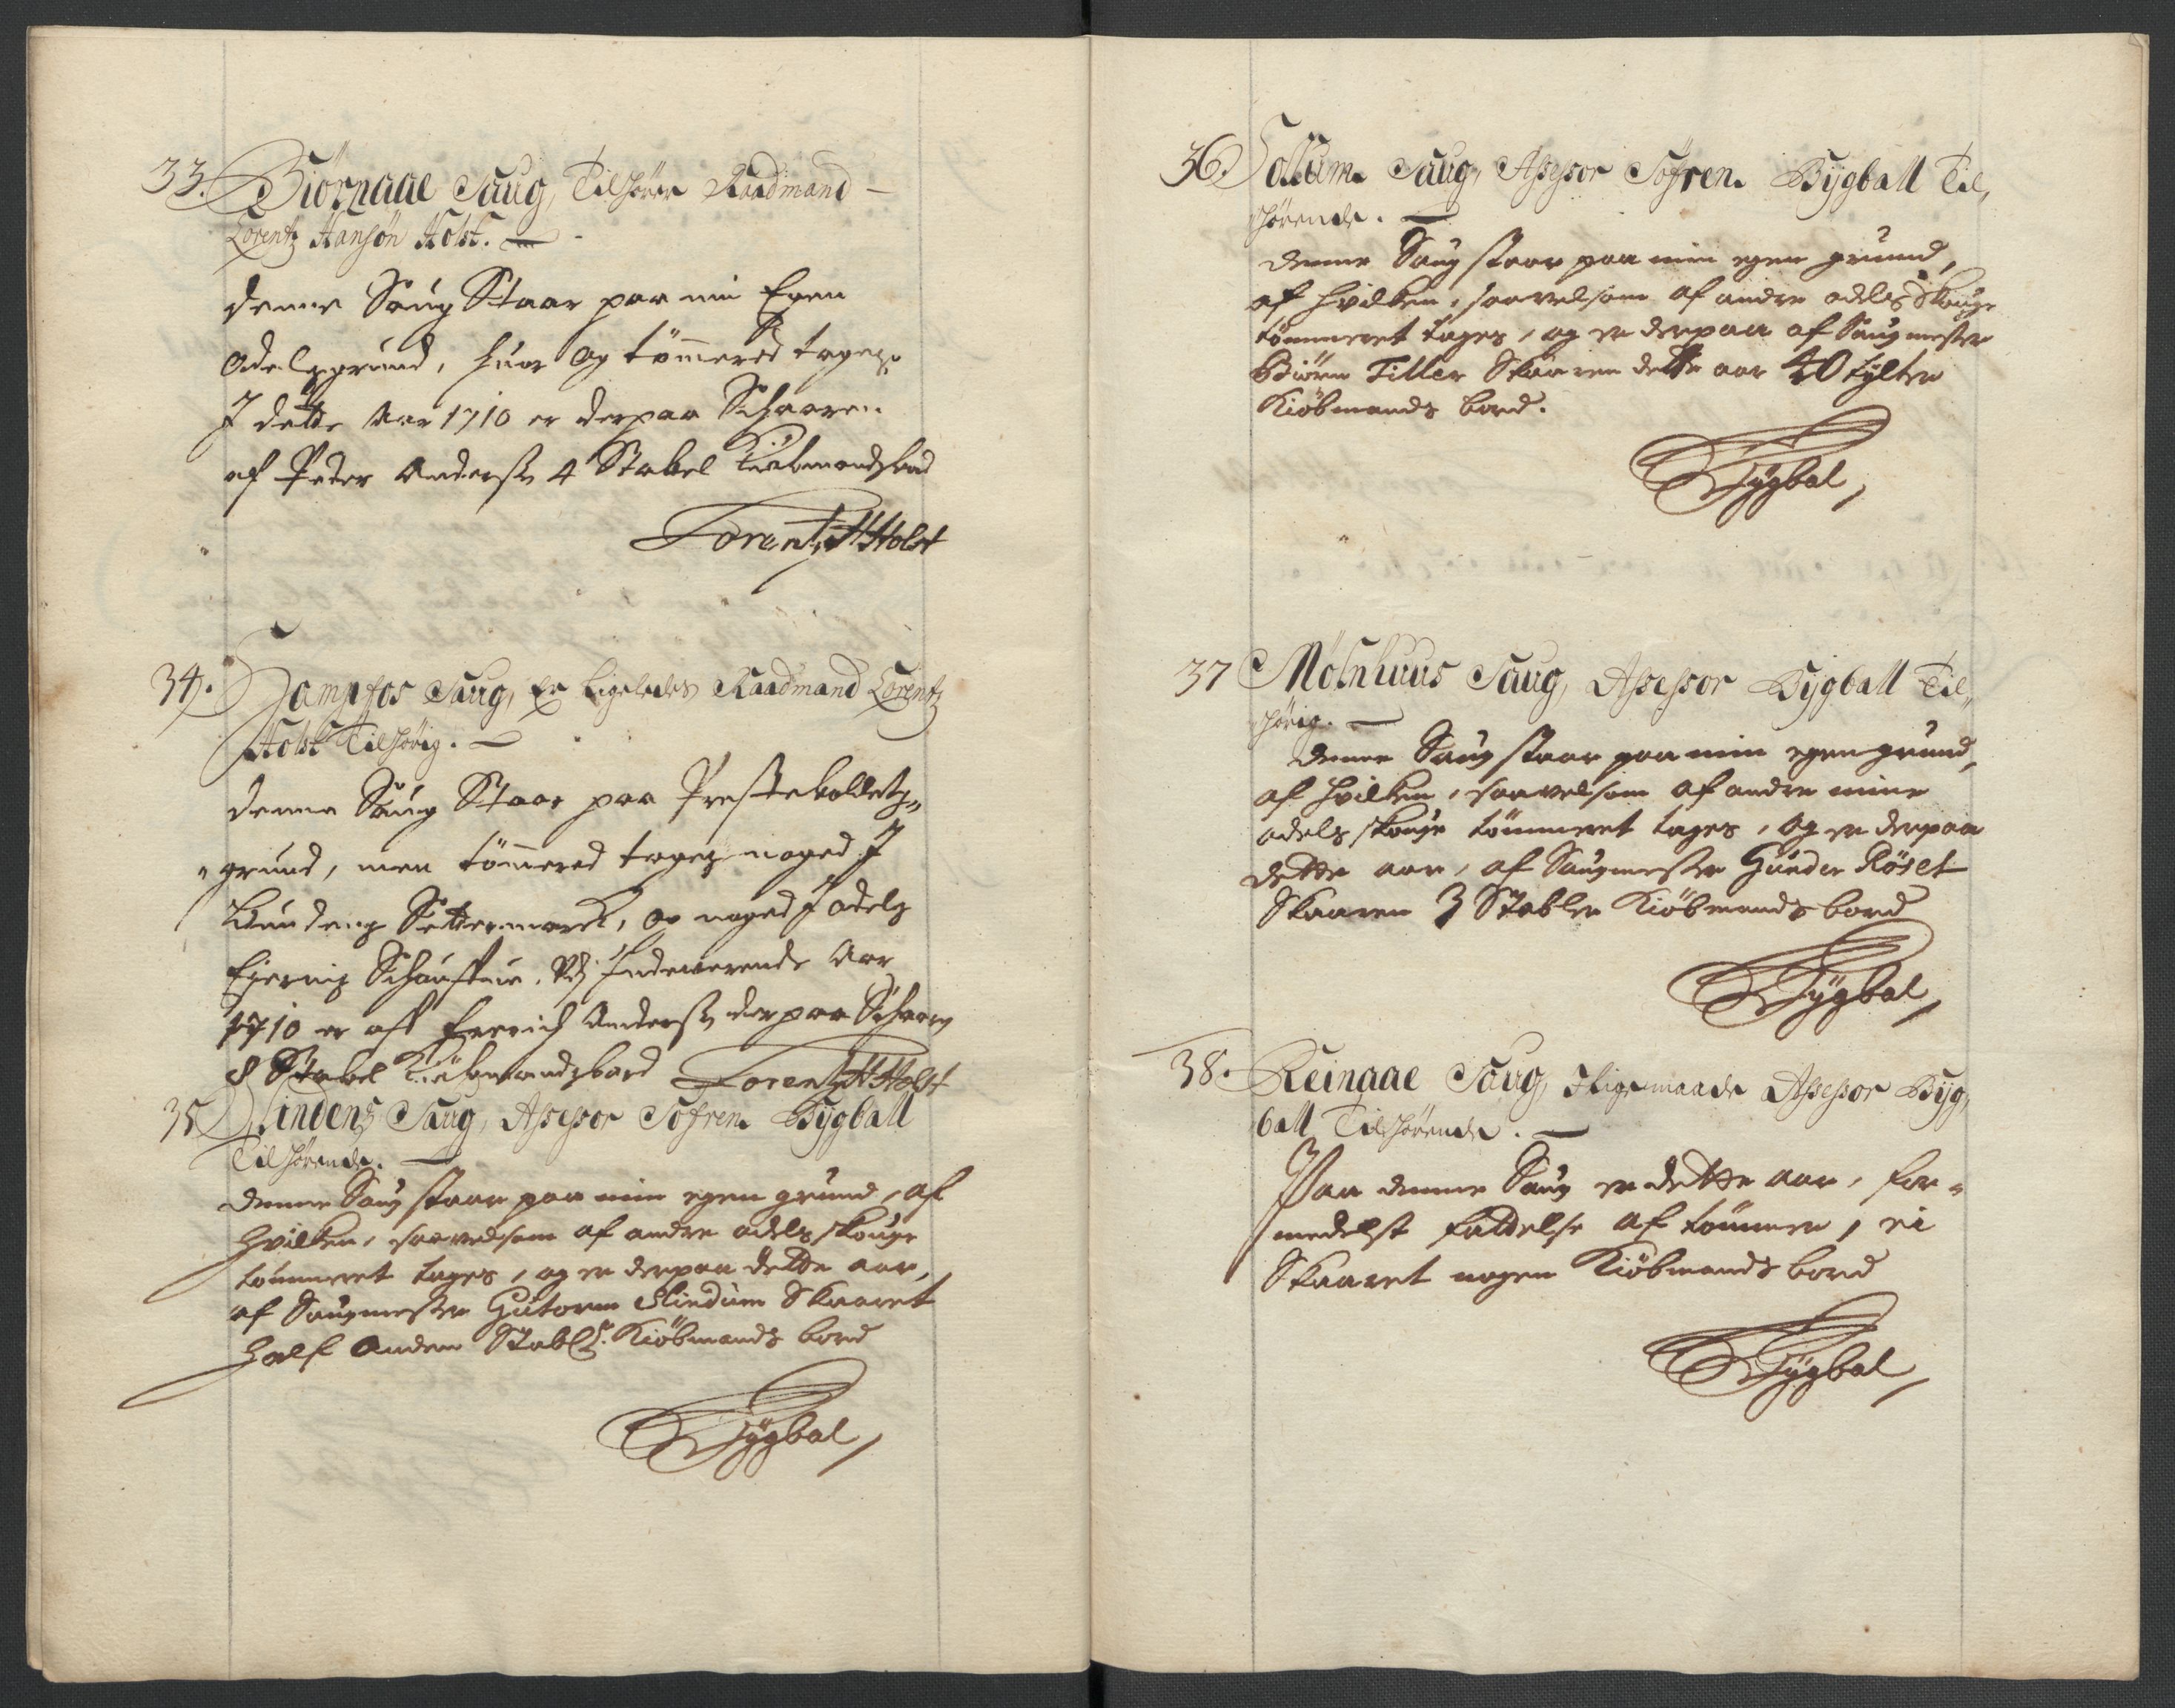 33. Biørnaae Saug, Tilhører Raadmand –
Lorentz Hansøn Holst. –
denne Saug Staar paa min Egen
Odelsgrund, huor og tømmered tages.
J dette Aar 1710 er derpaa Schaaren
af Peder Anderss 4 Stabel Kiøbmandsbord
Lorentz HHolst
34. Hampfos Saug, Er Ligeledes Raadmand Lorentz
Holst Tilhørig. –
denne Saug Staar paa Prestebolletz
grund, men tømmered tages noged J
noged J odels
Eyernis Indeverende Aar
1710 er aff Anderss derpaa Schaaren
8 Stabel Kiøbmandsbord Lorentz HHolst
35 Lindens Saug, Assessor Søfren Bygball
Tilhørende. –
denne Saug staar paa min egen grund, af
hvilken, saavelsom af andre odels skouge
tømmeret tages, og er derpaa dette aar,
af Saugmester Gutorm Skaaret
half Anden Stabl: Kiøbmands bord
Bygbal,
36. Saug, Assessor Søfren Bygball Til,
hørende. –
denne Saug staar paa min egen grund,
af hvilken, saavelsom af andre odels Skouge
tømmeret tages, og er derpaa af Saugmester
Biørn Tiller Skaaren dette aar 40 tylter
Kiøbmands bord.
Bygbal,
37 Mølnhuus Saug, Assessor Bygball Til,
hørig. –
denne Saug staar paa min egen grund,
af hvilken, saavelsom af andre mine
odels skouge tømmeret tages, og er derpaa
dette aar, af Saugmester Gunder Røset
Skaaren 3 Stabler Kiøbmands bord
Bygbal,
38. Reinaae Saug, Jligemaade Assessor Byg,
ball Tilhørende. –
Paa denne Saug er dette aar, for-
medelst fattelse af tømmer, ei
Skaaret nogen Kiøbmands bord
Bygbal,